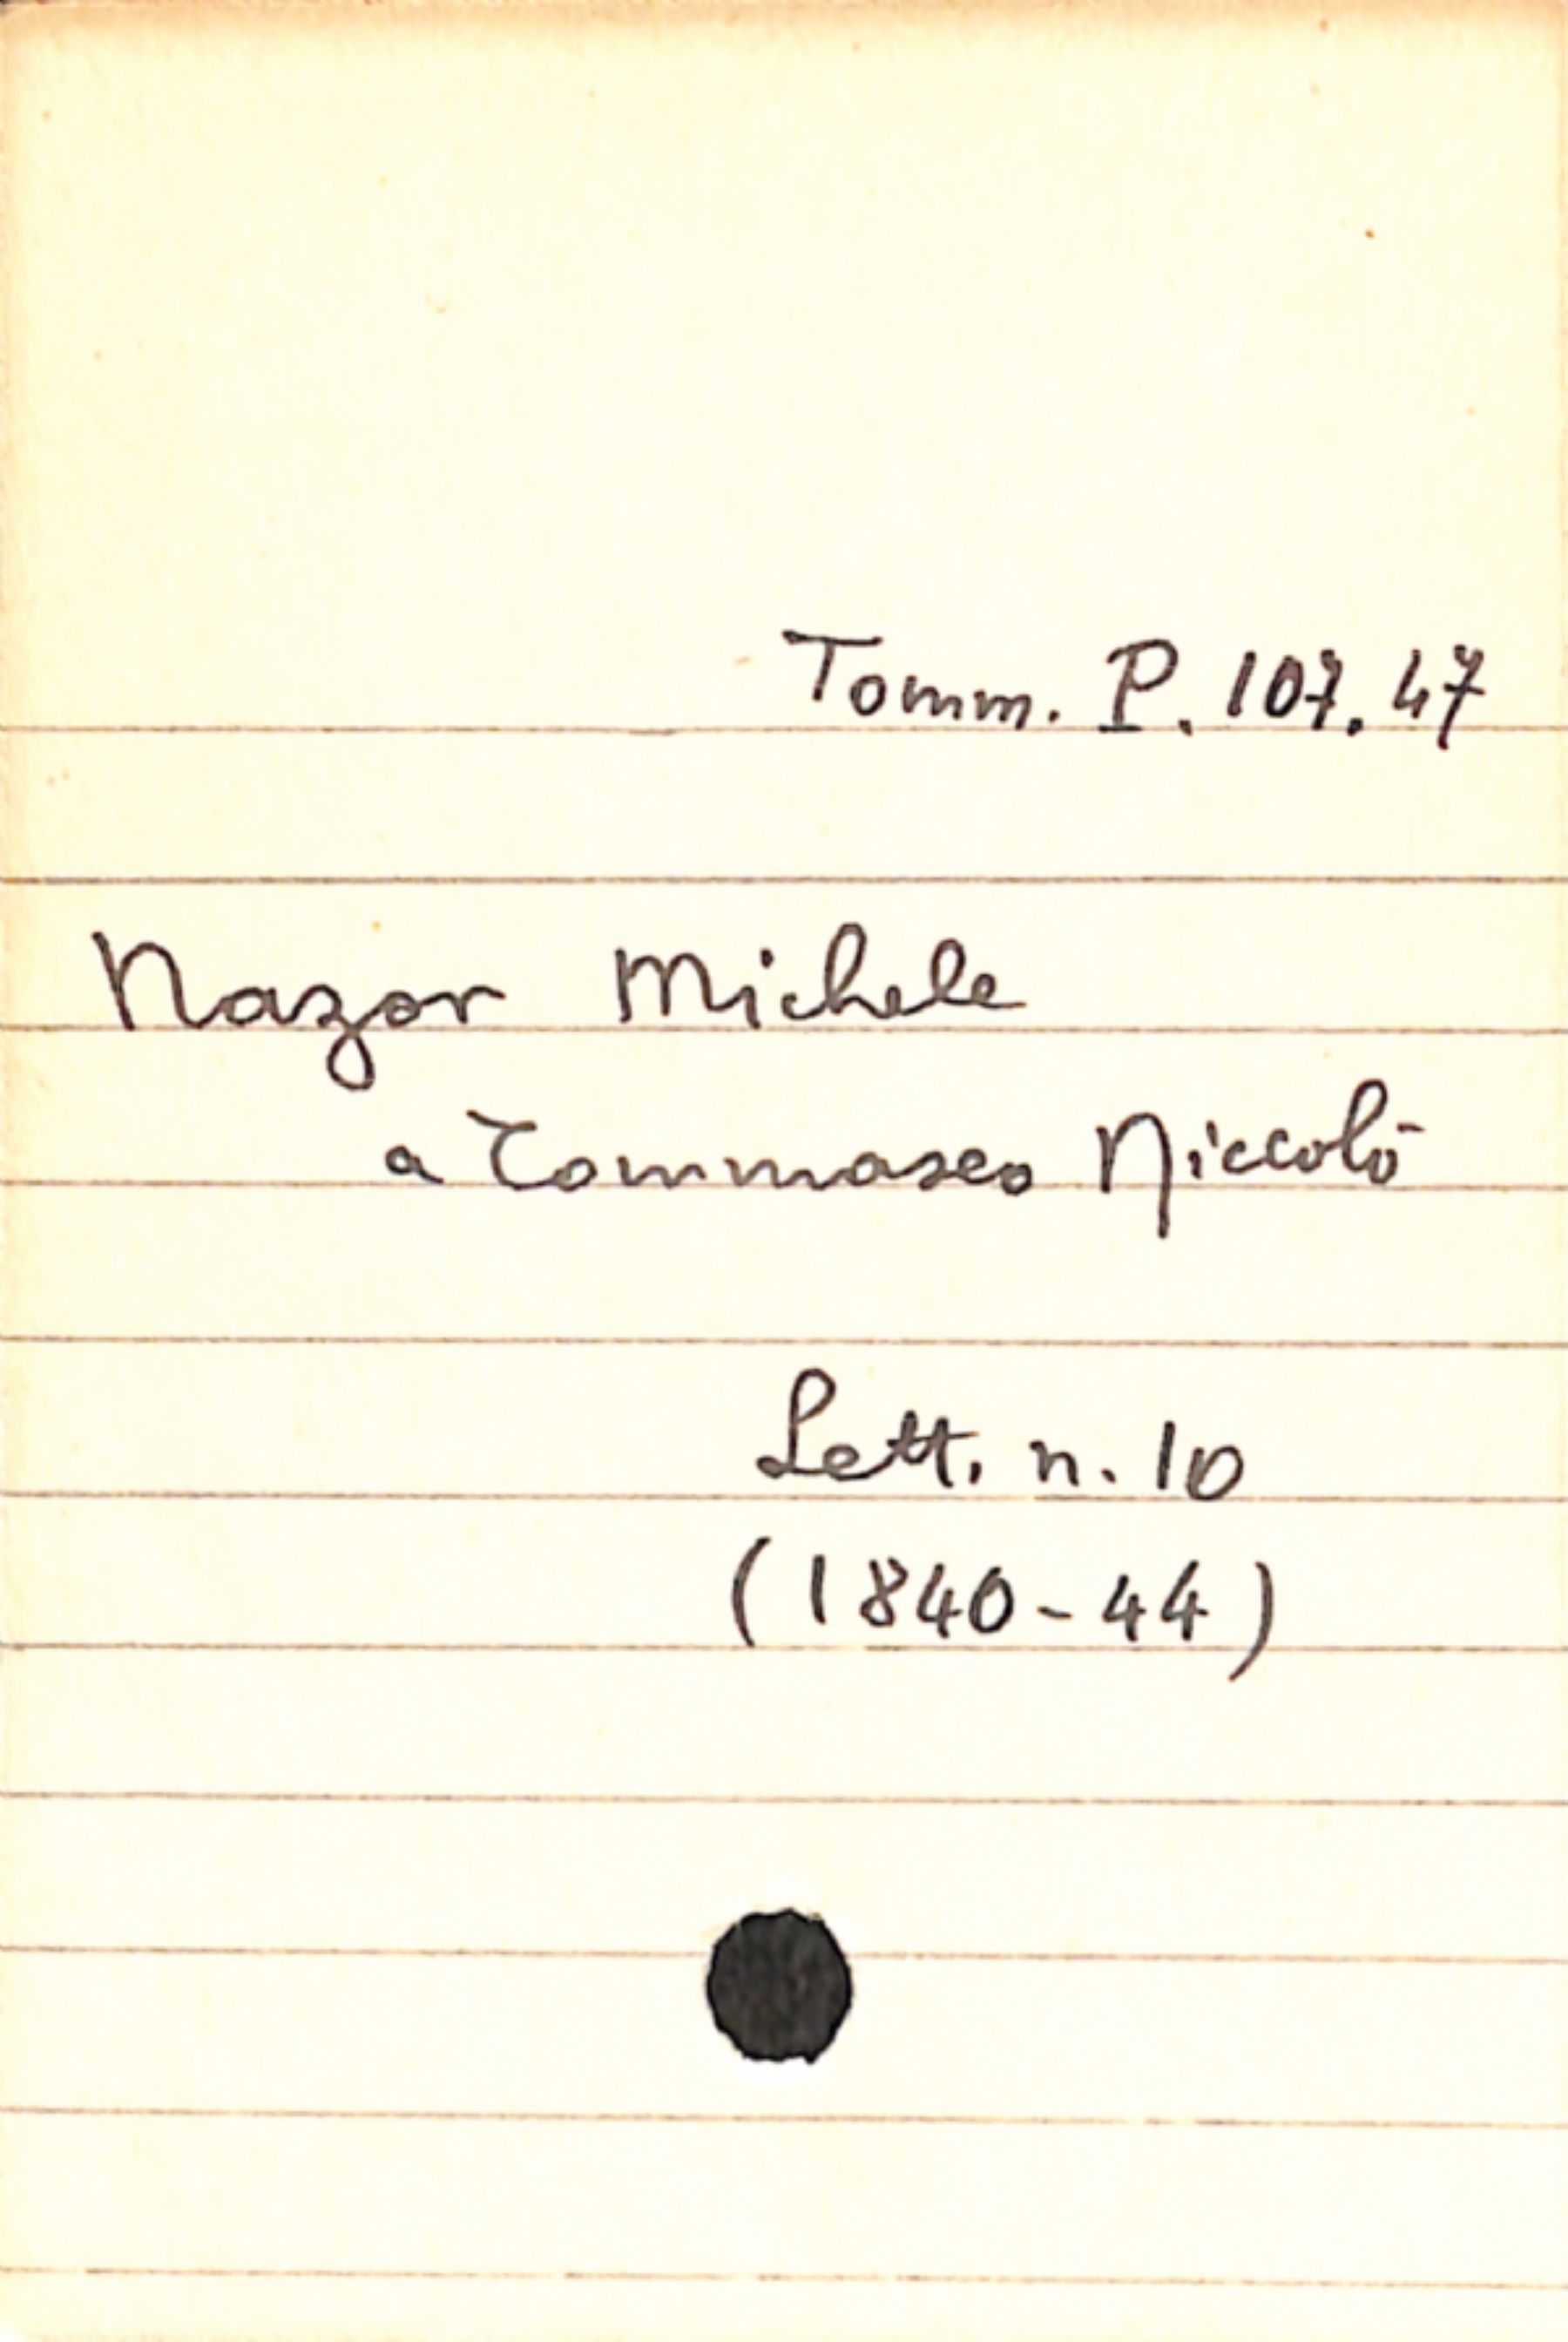 Tomm. P. 107.47
Nazor Michele
a Tommaseo Niccolò
Lett. n. 10
(1840-44)